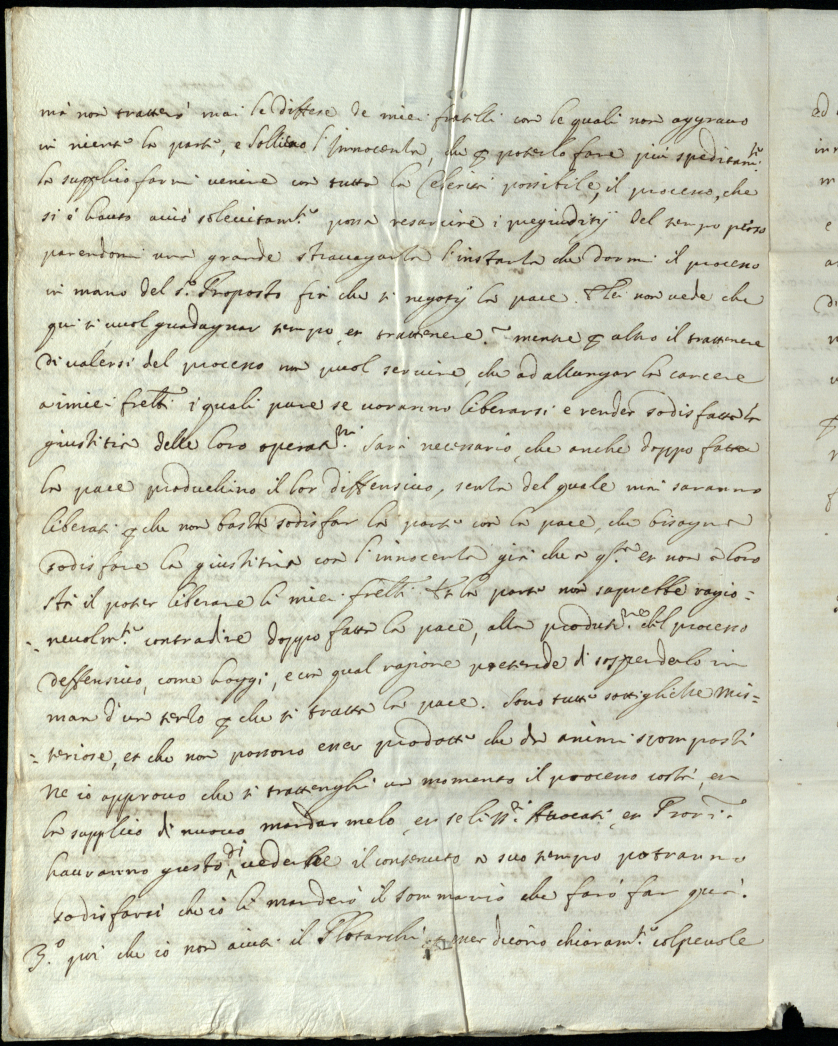 mà non tratterò mai le diffese de miei fratelli con le quali non aggravo
in niente la parte, e sollievo l'innocenza, che p poterlo fare più speditam.te
la supplico farmi venire con tutta la celerità possibile, il processo, che
si è hauto acciò solecitam.te possa resarcire i pregiuditij del tempo perso
parendomi una grande stravaganza l'instanza che dormi il processo
in mano del s.r Proposto fin che si negotij la pace. Et lei non vede che
qui si vuol guadagnar tempo, et trattenere mentre p altro il trattenere
di valersi del processo non puol servire, che ad allungar la carcere
a i miei fretlli i quali pure se voranno liberarsi e render sodisfatta la
giustitia delle loro operat.ni sarà necessario, che anche doppo fatta
la pace produchino il lor diffensivo, senza del quale mai saranno
liberati p che non basta sodisfar la parte con la pace, che bisogna
sodisfare la giustitia con l'innocenza già che a q.sta et non a loro
stà il poter liberare li miei fretlli. Et la parte non saprebbe ragio=
=nevolm.te contradire doppo fatta la pace, alla produt.ne del processo
deffensivo, come hoggi, e con qual ragione pretende di sospenderlo in
man d'un terzo p che si tratta la pace. Sono tutte sottigliezze mis=
=teriose, et che non possono esser prodotte che da animi scomposti
Ne io approvo che si trattenghi un momento il processo costì, et
la supplico di nuovo mandarmelo, et se li ss.ri Avocati, et
hauranno gusto di vedere il contenuto a suo tempo potranno
sodisfarsi che io li manderò il sommario che farò far quà.
3.o poi che io non aiuti il Plotarchi esser dicono chiaram.te colpevole